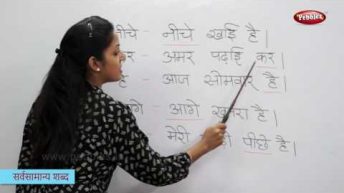 Pebbles
नीचे - नीचे खड़ि है।
- अमर पढ़ाई कर
- आज सोमवार है।
आगे - आगे खतरा है।
मेरी पीछे है।
सर्वसामान्य शब्द